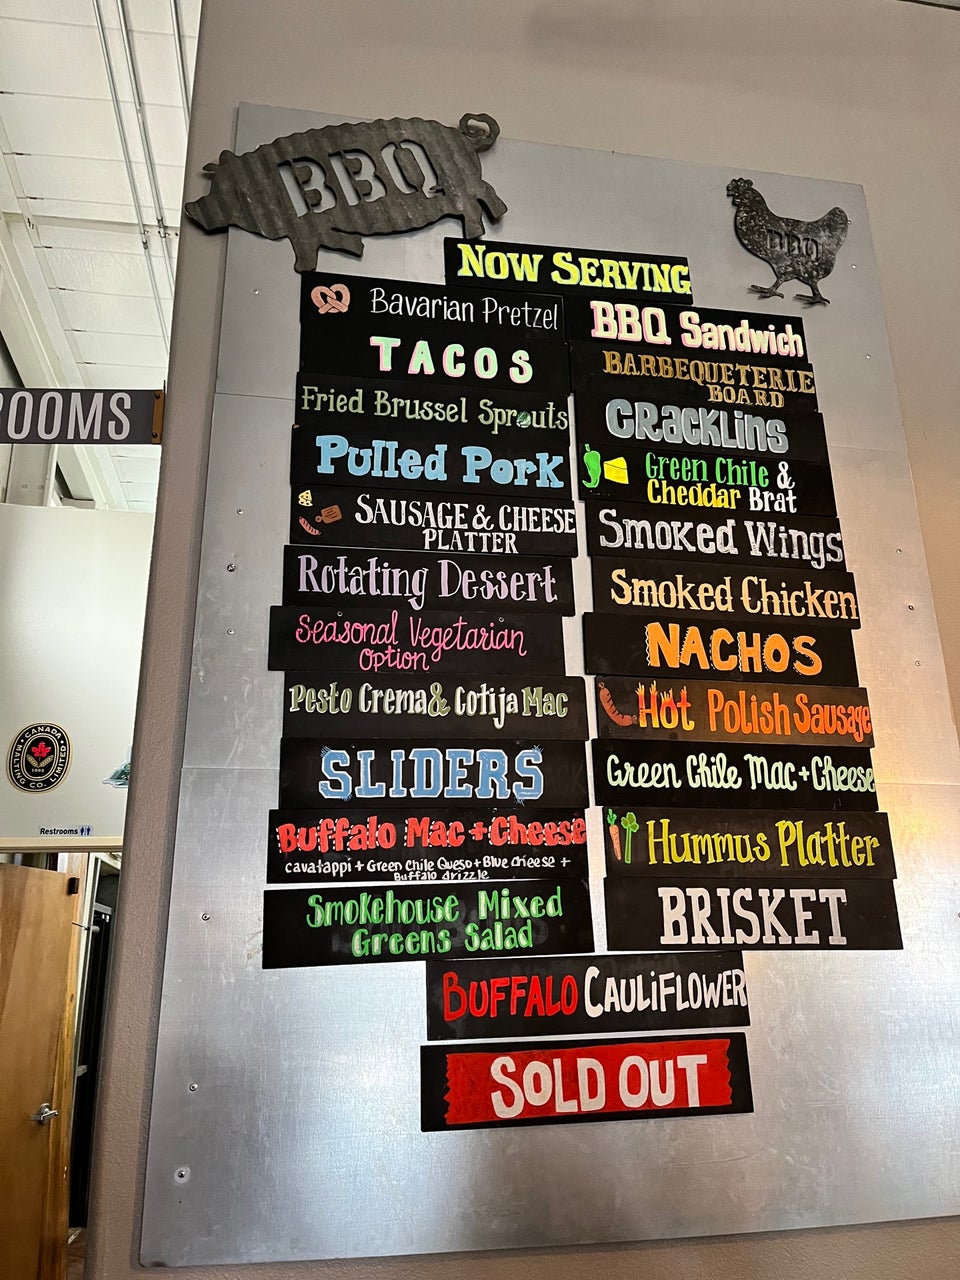 BBQ
BBQ
Now Serving
Bavarian Pretzel
TACOS
Fried Brussel Sprouts
Pulled Pork
SAUSAGE & CHEESE
PLATTER
Rotating Dessert
Seasonal Vegetarian
Option
Pesto Crema & Cotija Mac
SLIDERS
Buffalo Mac + Cheese
cavatappi + Green Chile Queso + Blue cheese +
Buffalo drizzle
Smokehouse Mixed
Greens Salad
BBQ Sandwich
BARBEQUETERIE
BOARD
CRACKLINS
Green Chile &
Cheddar Brat
Smoked Wings
Smoked Chicken
NACHOS
Hot Polish Sausage
Green Chile Mac + Cheese
Hummus Platter
BRISKET
BUFFALO CAULiFLOWER
SOLD OUT
ROOMS
CANADA
MALTING CO. LIMITED
1902
Restrooms